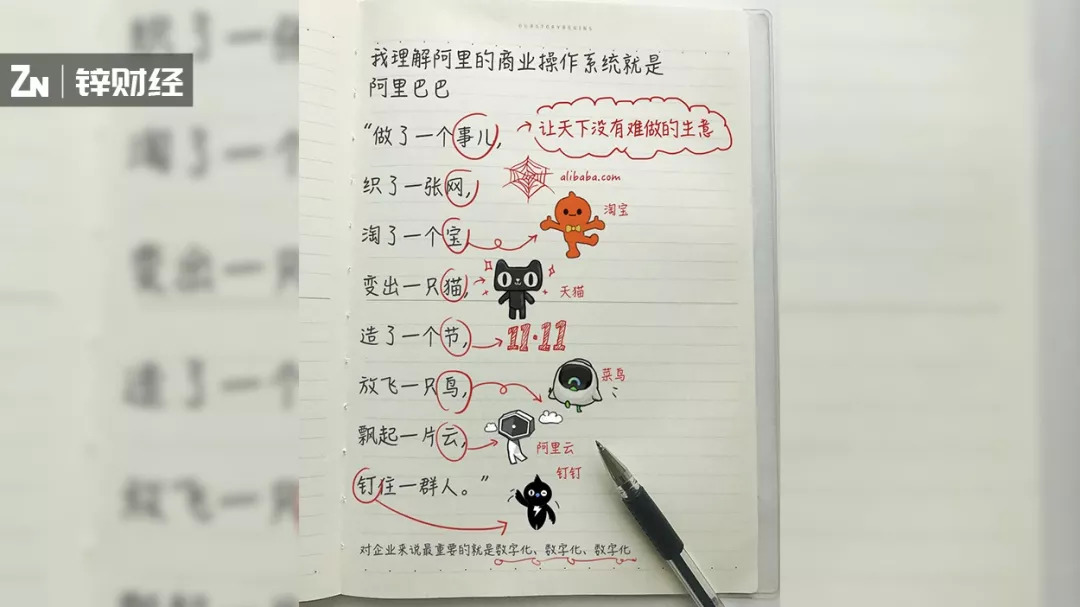 ZN 锌财经
我理解阿里的商业操作系统就是
阿里巴巴
“做了一个事儿, 让天下没有难做的生意
织了一张网, alibaba.com
淘了一个宝, 淘宝
变出一只猫, 天猫
造了一个节, 11·11
放飞一只鸟, 菜鸟
飘起一片云, 阿里云
钉住一群人。” 钉钉
对企业来说最重要的就是数字化、数字化、数字化